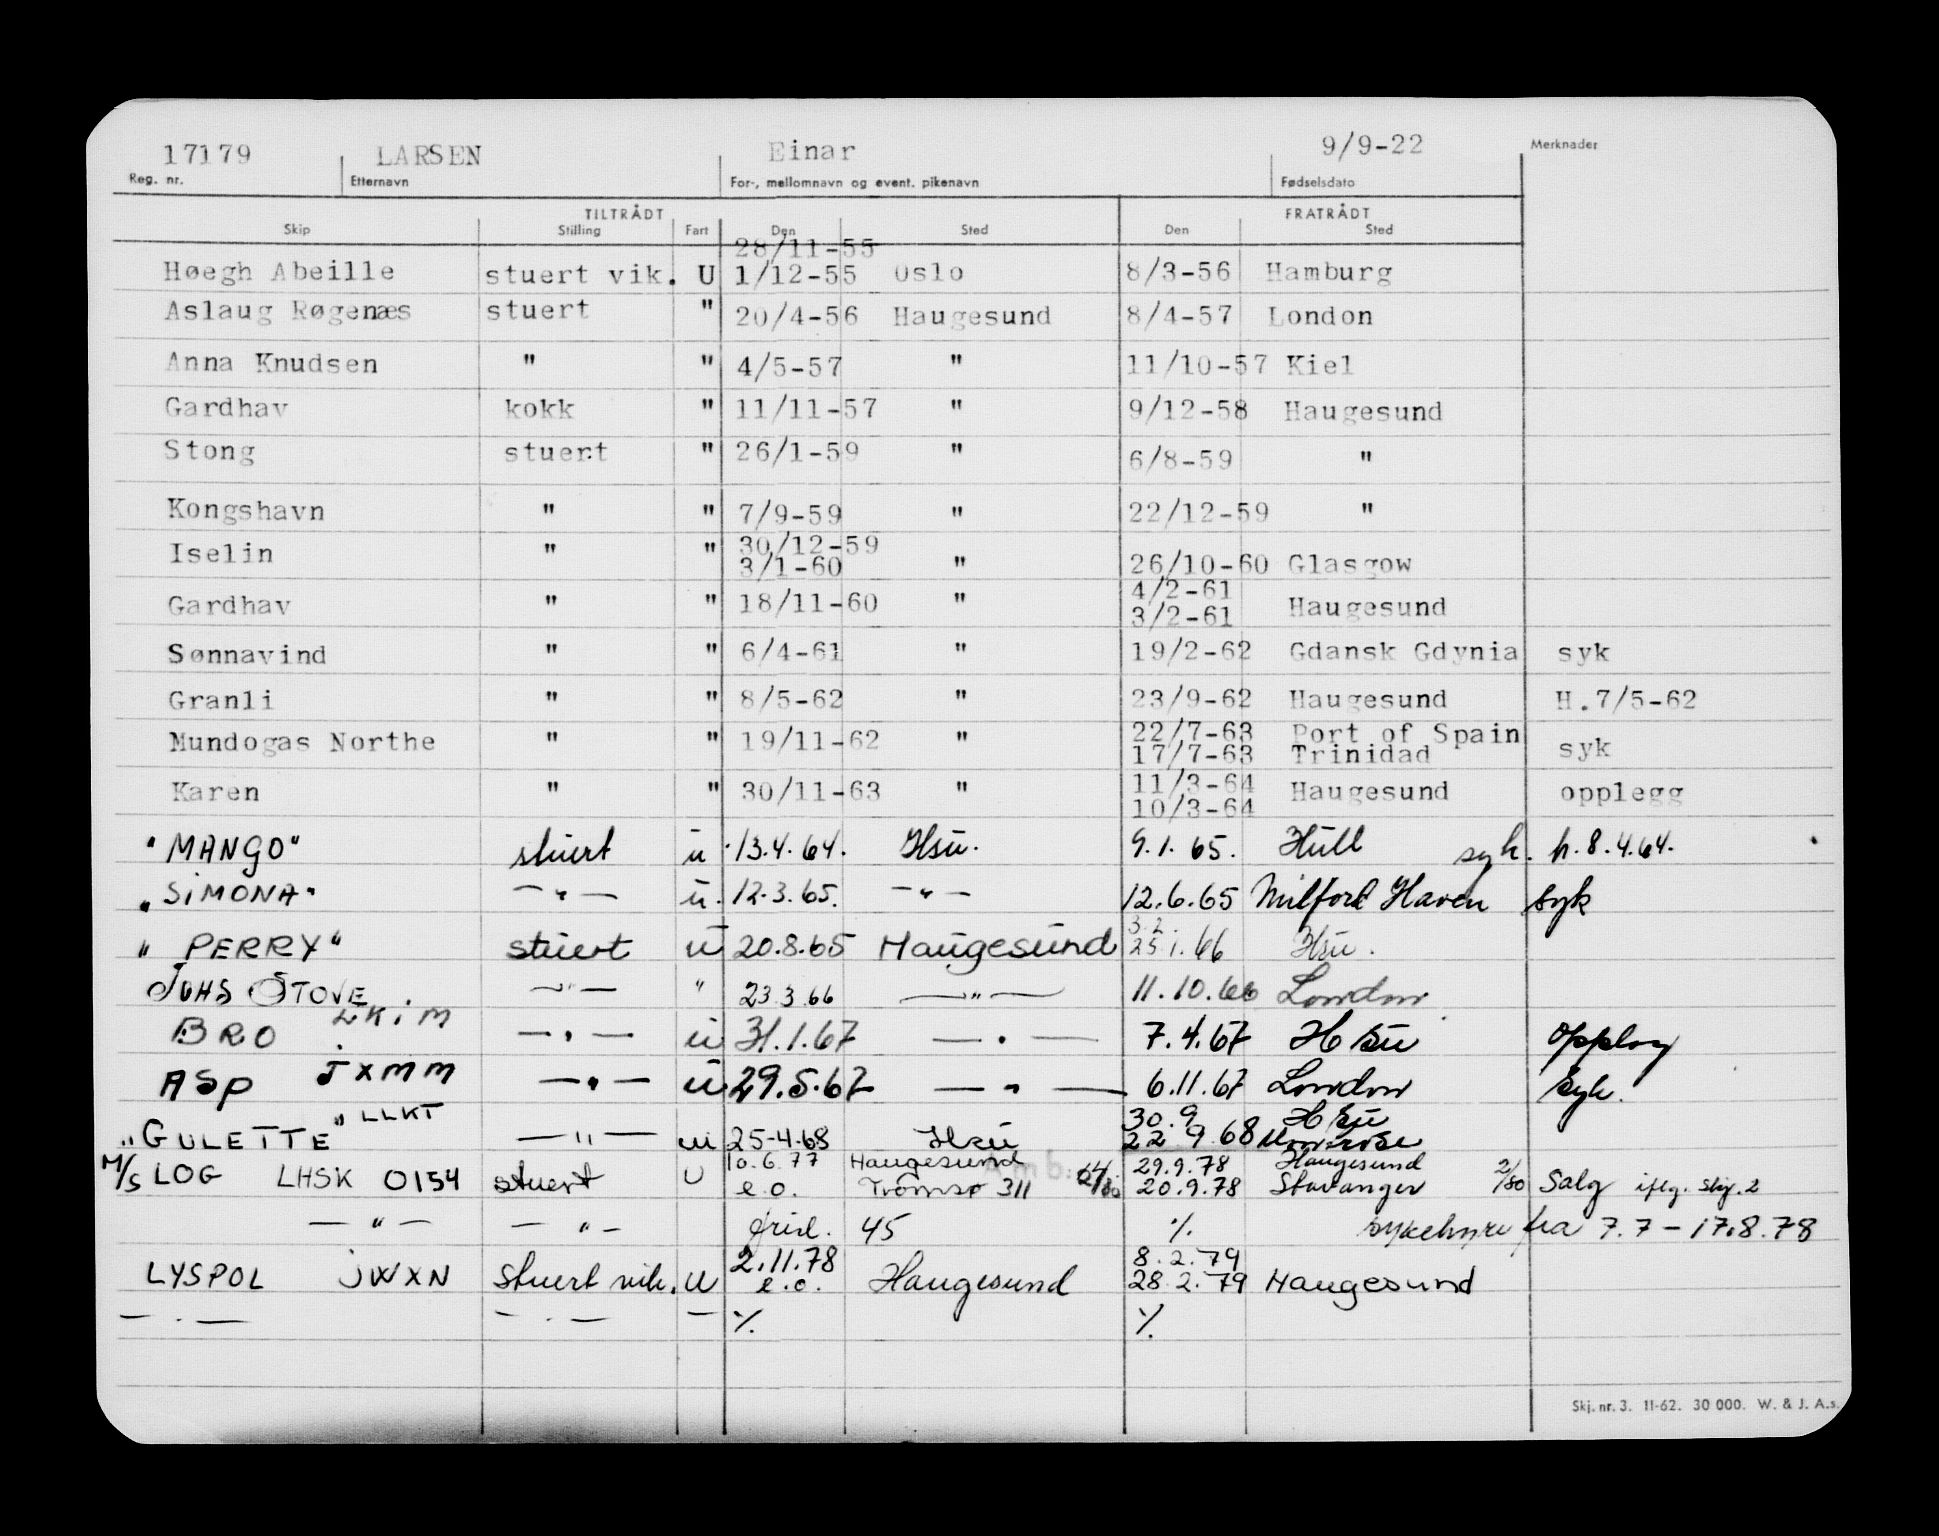 17179 LARSEN Einar 9/9-22 Merknader
Reg. nr. Etternavn For-, mellomnavn og event. pikenavn Fødselsdato
TILTRÅDT FRATRÅDT
Skip Stilling Fart Den Sted Den Sted
28/11-55
Høegh Abeille stuert vik. U 1/12-55 Oslo 8/3-56 Hamburg
Aslaug Røgenæs stuert " 20/4-56 Haugesund 8/4-57 London
Anna Knudsen " " 4/5-57 " 11/10-57 Kiel
Gardhav kokk " 11/11-57 " 9/12-58 Haugesund
Stong stuert " 26/1-59 " 6/8-59 "
Kongshavn " " 7/9-59 " 22/12-59 "
30/12-59
Iselin " " 3/1-60 " 26/10-60 Glasgow
4/2-61
Gardhav " " 18/11-60 " 3/2-61 Haugesund
Sønnavind " " 6/4-61 " 19/2-62 Gdansk Gdynia syk
Granli " " 8/5-62 " 23/9-62 Haugesund H.7/5-62
22/7-63 Port of Spain
Mundogas Northe " " 19/11-62 " 17/7-63 Trinidad syk
11/3-64
Karen " " 30/11-63 " 10/3-64 Haugesund opplegg
"MANGO" stuert u 13.4.64. Hsu. 9.1.65. Hull syk. h.8.4.64.
"SIMONA" — " — u. 12.3.65. — " — 12.6.65 Milford Haven syk
3.2.
"PERRY" stuert u 20.8.65 Haugesund 25.1.66 Hsu.
JOHS STOVE — " — " 23.3.66 — " — 11.10.66 London
BRO LKIM — " — u 31.1.67 — " — 7.4.67 Hsu opplag
ASP JXMM — " — u 29.5.67 — " — 6.11.67 London syk.
30.9 Hsu
"GULETTE" LLKT — " — u 25-4.68 Hsu 22.9.68 Montrose
10.6.77 Haugesund 29.9.78 Haugesund
M/S LOG LHSK 0154 stuert U e.o. Tromsø 311 20.9.78 Stavanger 2/80 Salg iflg. skj. 2
— " — — " — frid. 45 %. sykehyre fra 7.7 – 17.8.78
2.11.78 8.2.79
LYSPOL JWXN stuert vik. U e.o. Haugesund 28.2.79 Haugesund
— " — — " — — %. %.
Skj. nr. 3. 11-62. 30 000. W. & J. A.s.